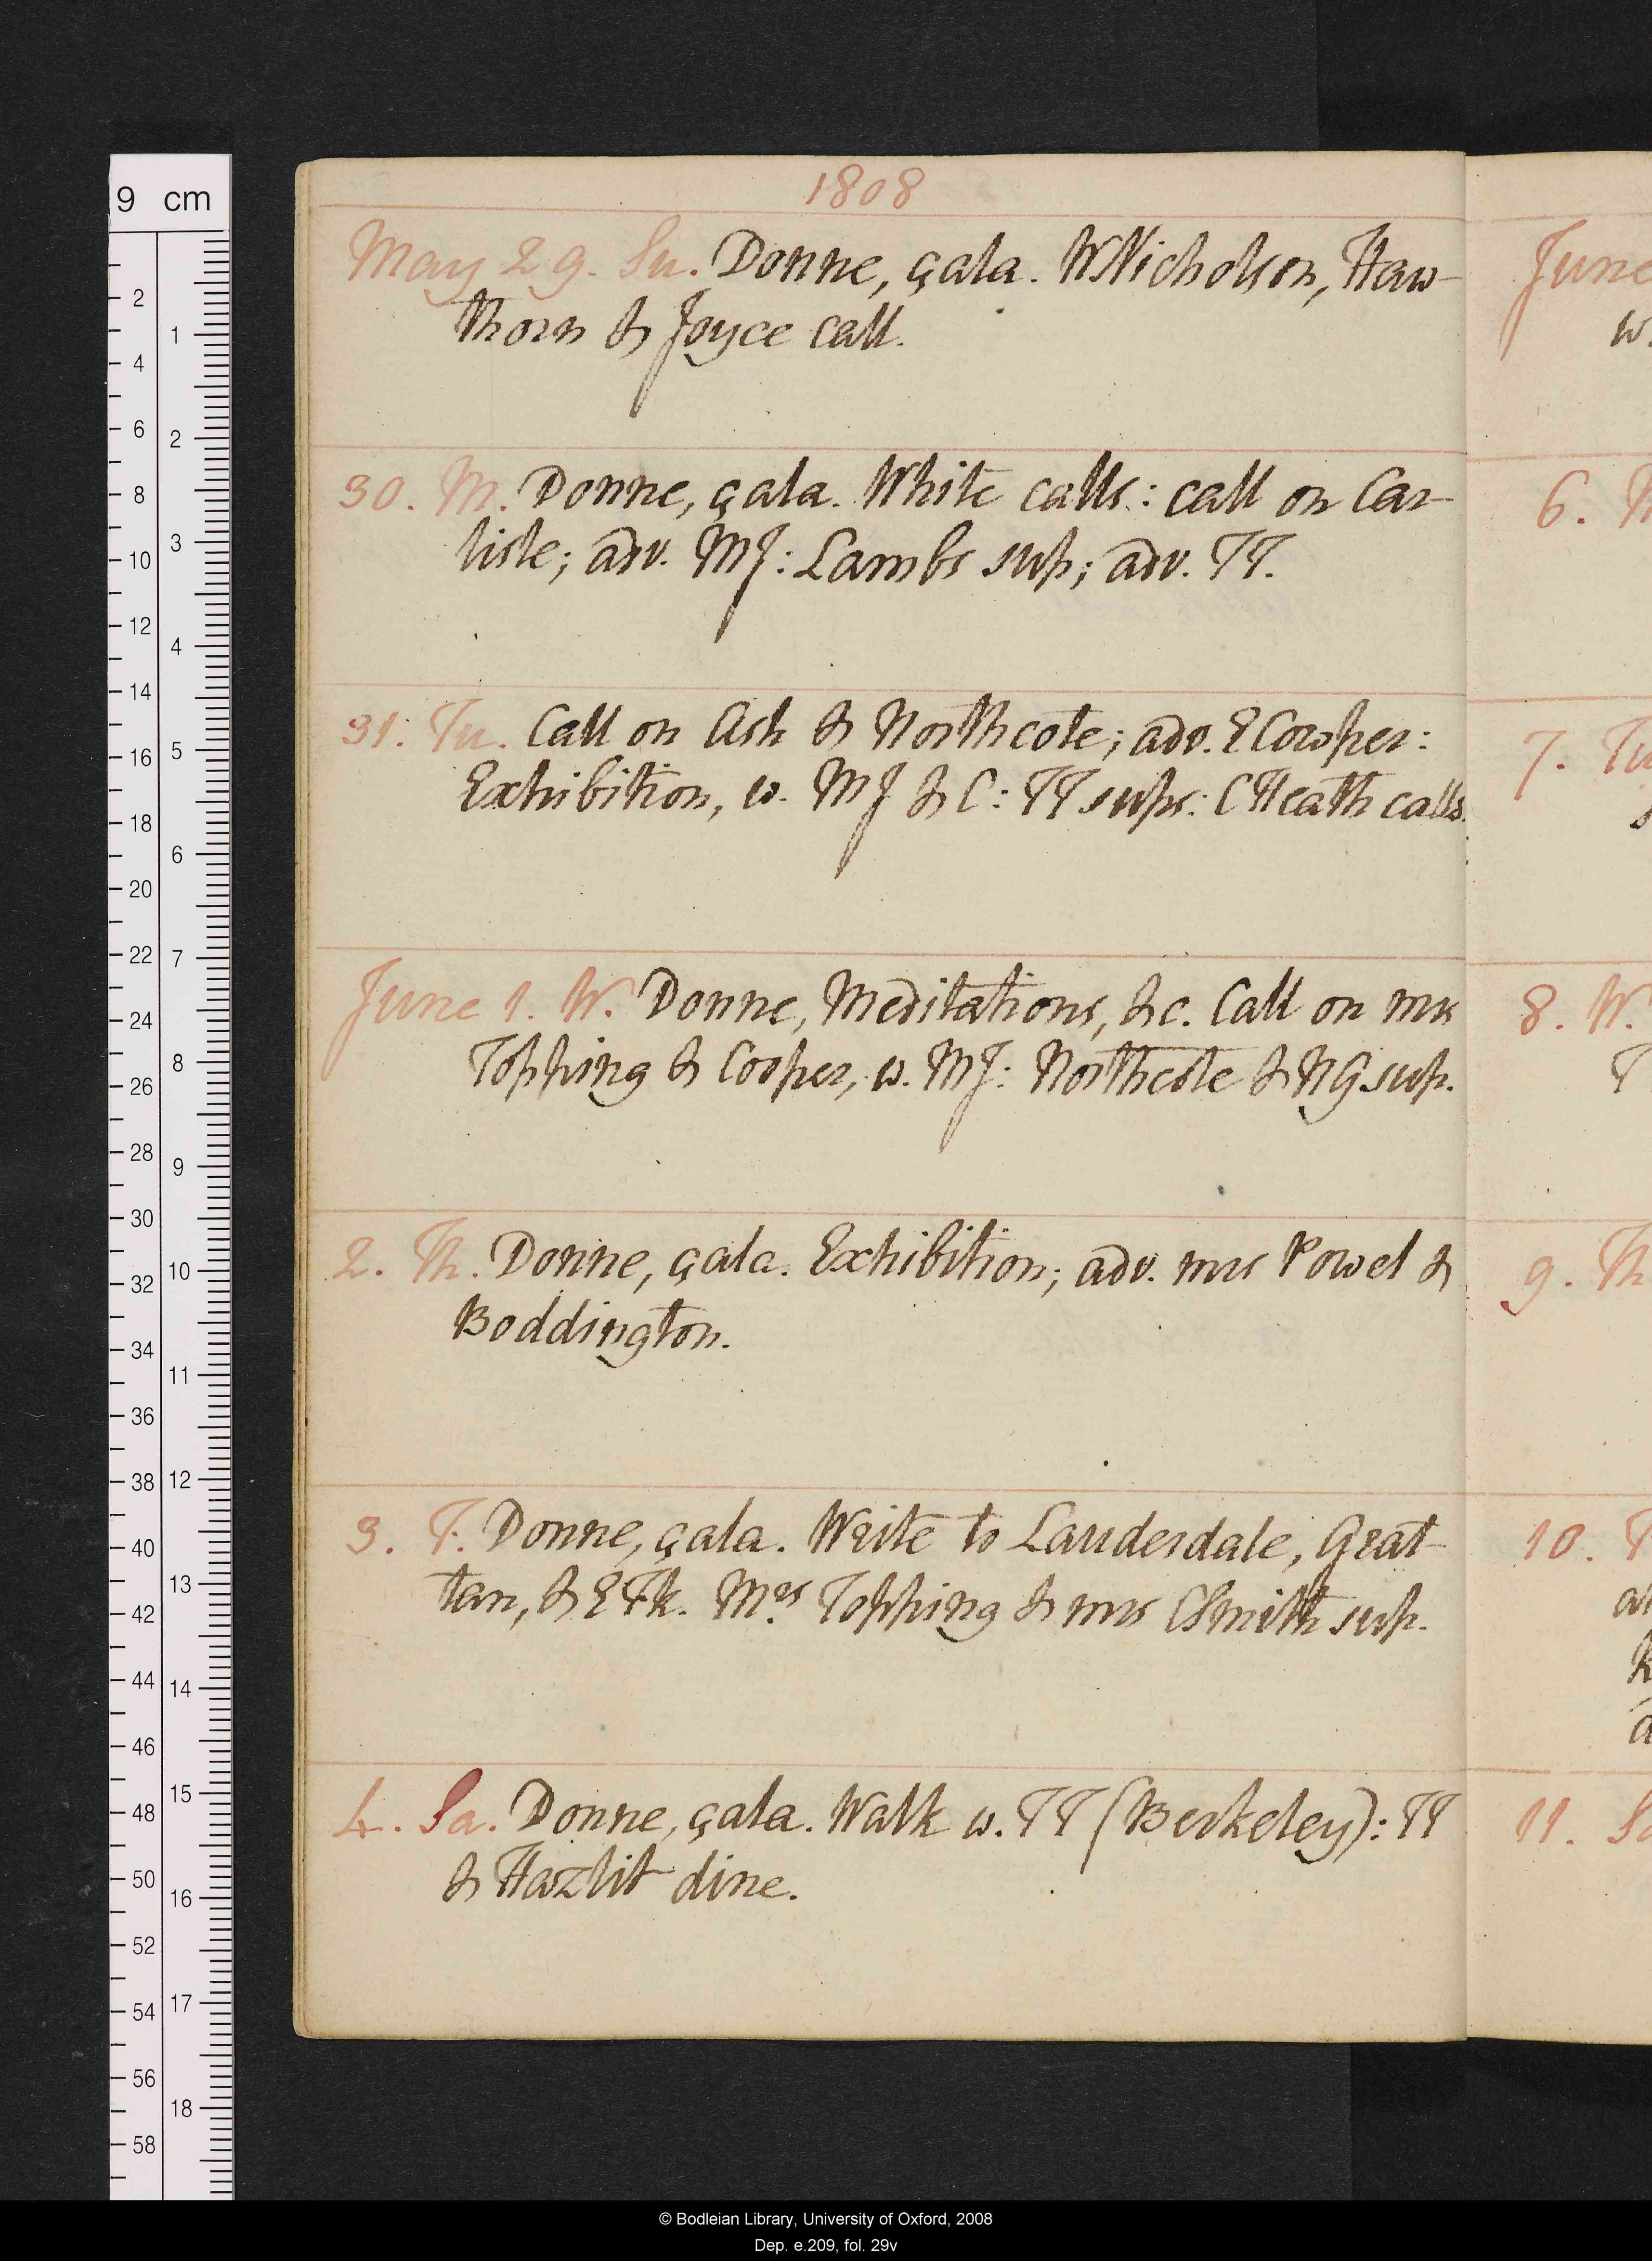 1808
May 29. Su. Donne, çala. WNicholson, Haw-
thorn & Joyce call.
30. M. Donne, çala. White calls: call on Car-
lisle; adv. MJ: Lambs sup; adv. TT.
31. Tu. Call on Ash & Northcote; adv. ECowper:
Exhibition, w. MJ & C: TT sups: CHeath calls.
June 1. W. Donne, Meditations, &c. Call on mrs
Topping & Cooper, w. MJ: Northcote & NG sup.
2. Th. Donne, çala. Exhibition; adv. mrs Powel &
Boddington.
3. F. Donne, çala. Write to Lauderdale, Grat-
tan, & EFk. Mrs Topping & mrs CSmith sup.
4. Sa. Donne, çala. Walk w. TT (Berkeley): TT
& Hazlit dine.
June
w.
6.
7. Tu
8. W.
T
9. Th
10.
11. Sa
9 cm
2
4
6
8
10
12
14
16
18
20
22
24
26
28
30
32
34
36
38
40
42
44
46
48
50
52
54
56
58
1
2
3
4
5
6
7
8
9
10
11
12
13
14
15
16
17
18
© Bodleian Library, University of Oxford, 2008
Dep. e.209, fol. 29v